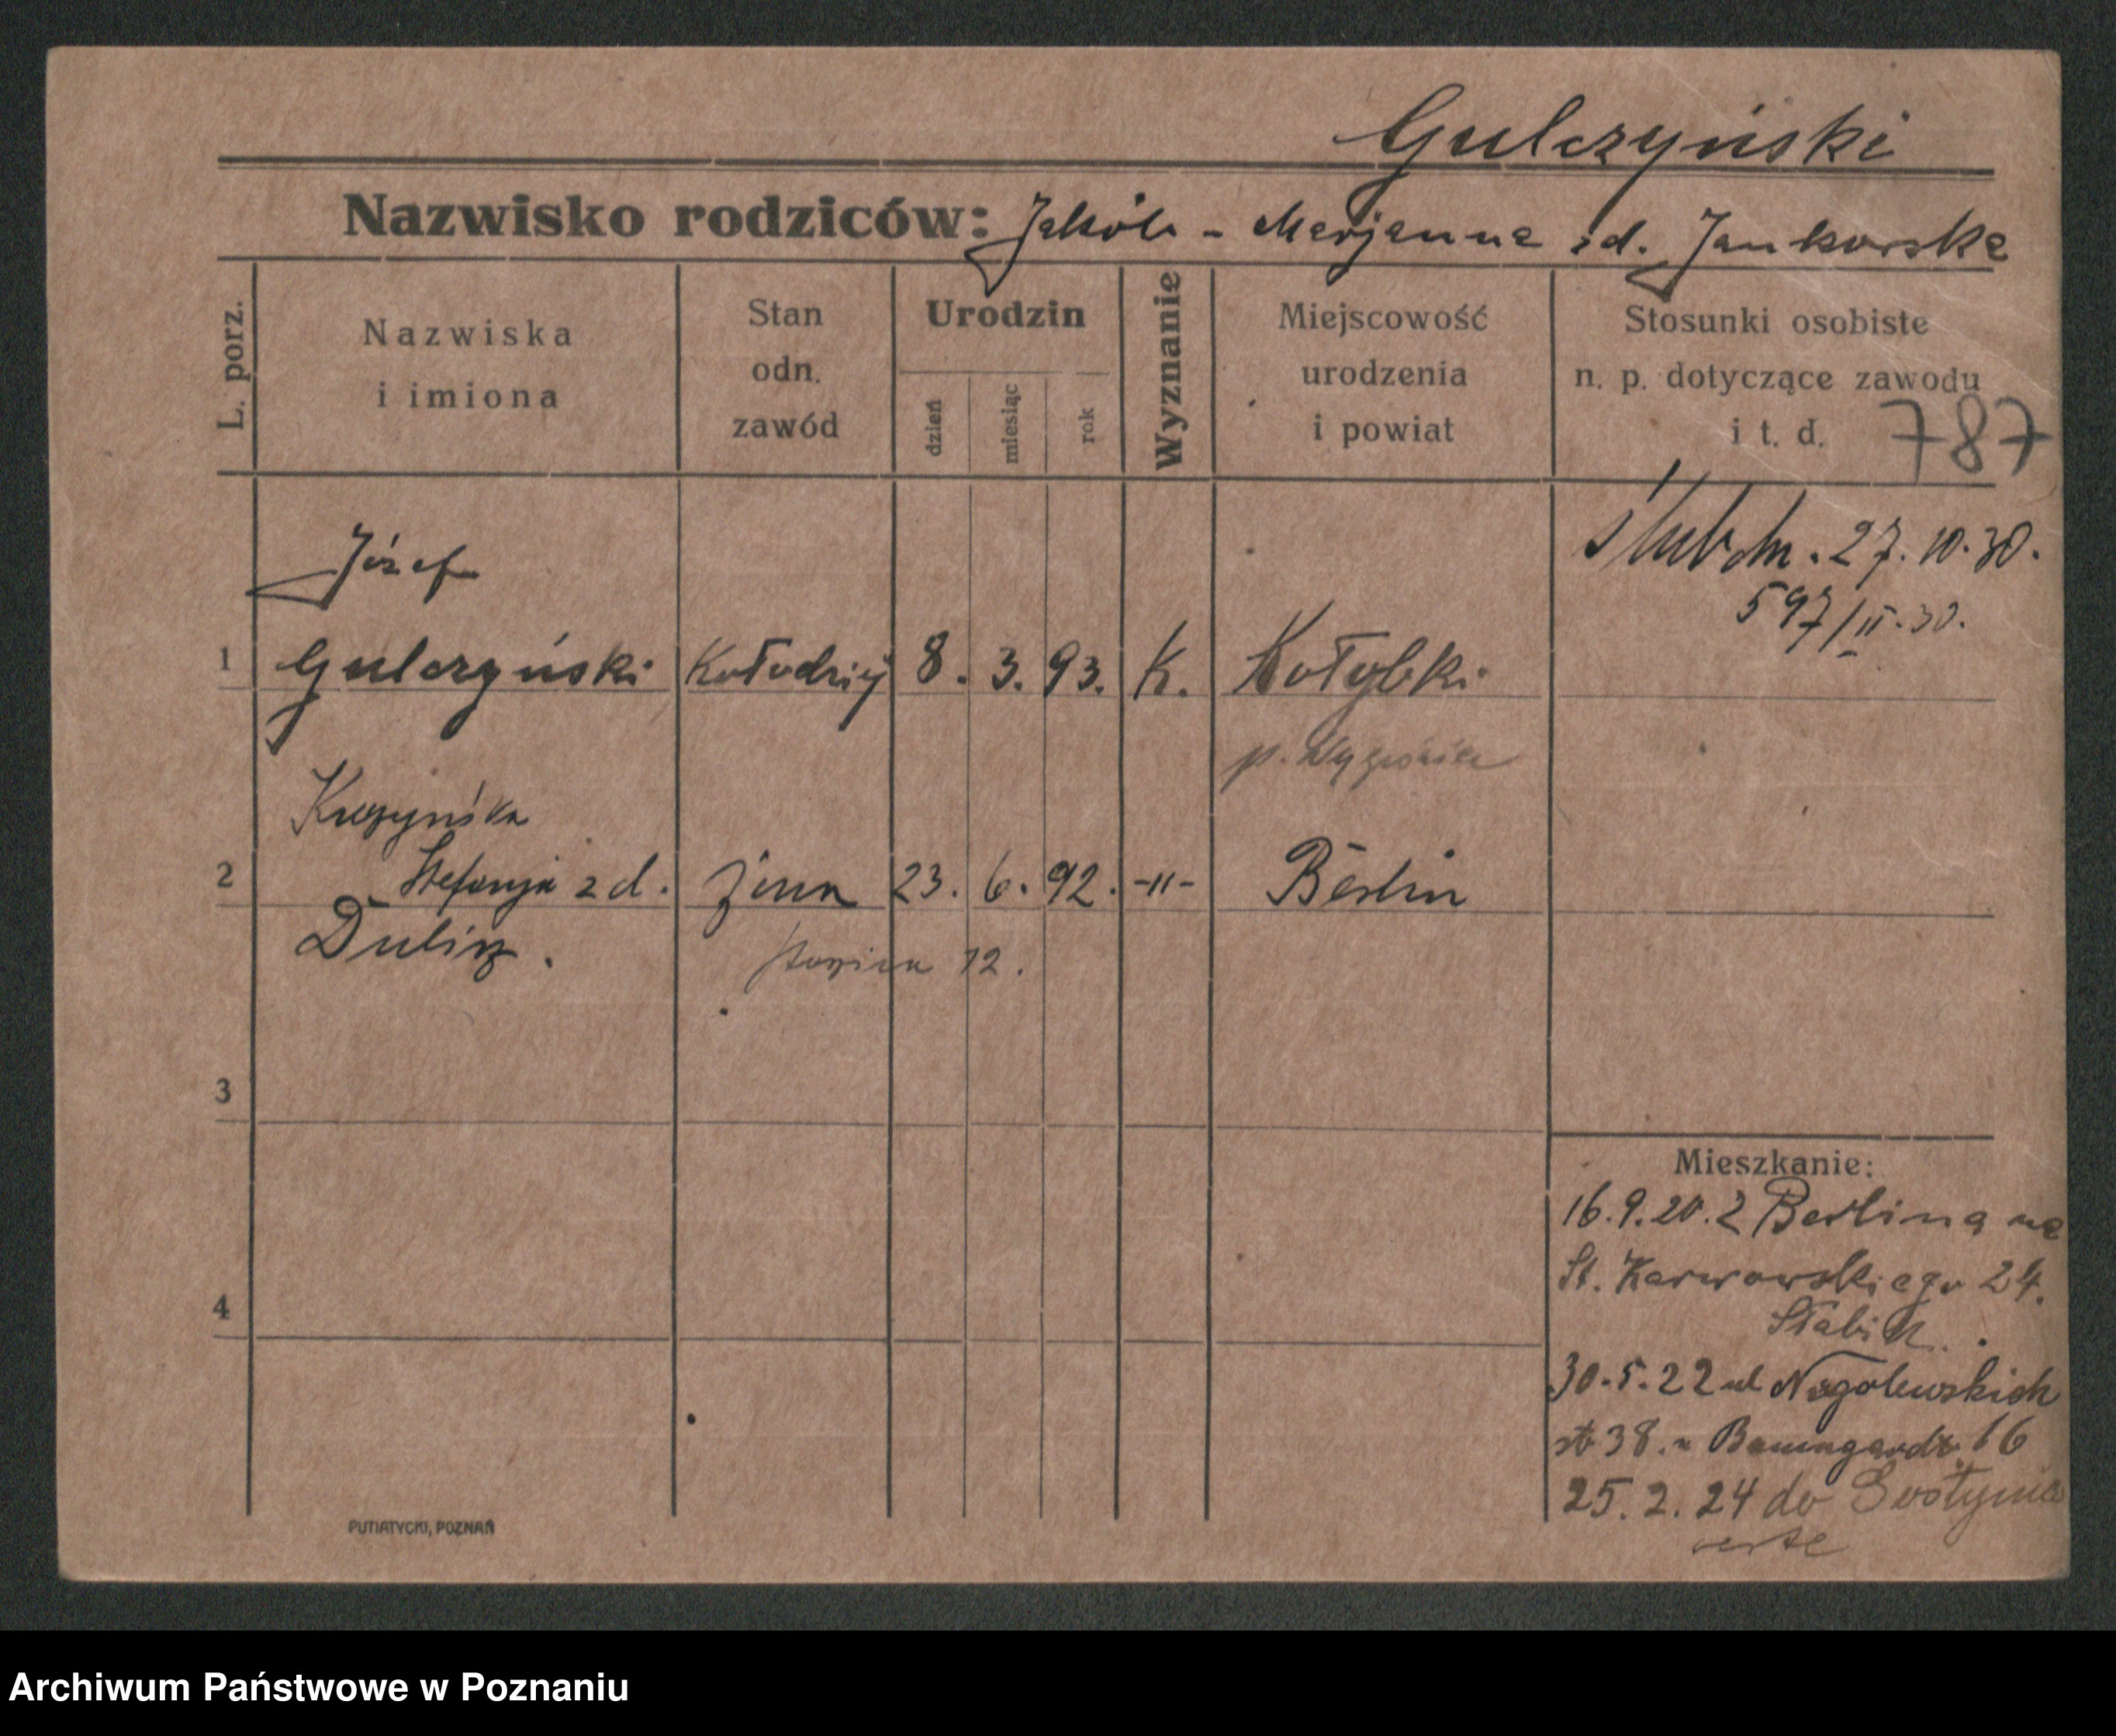 Gulczyński
Nazwisko rodziców: Jakób - Marjanna zd. Jankowska
L. porz.
Nazwiska
i imiona
Stan
odn.
zawód
Urodzin
dzień
miesiąc
rok
Wyznanie
Miejscowość
urodzenia
i powiat
Stosunki osobiste
n. p. dotyczące zawodu
i t. d.
787
ślub dn. 27.10.30.
597/II.30.
Józef
1 Gulczyński Kołodziej 8. 3. 93. K. Kołybki
p.
2 Stefanja zd. żona 23. 6. 92. -"- Berlin
12.
3
4
Mieszkanie:
16.9.20. z Berlina na
St. Karwowskiego 24.
30.5.22 ul Niegolewskich
38. Baumgardt 16
25.2.24 do
verte
PUTIATYCKI, POZNAŃ
Archiwum Państwowe w Poznaniu